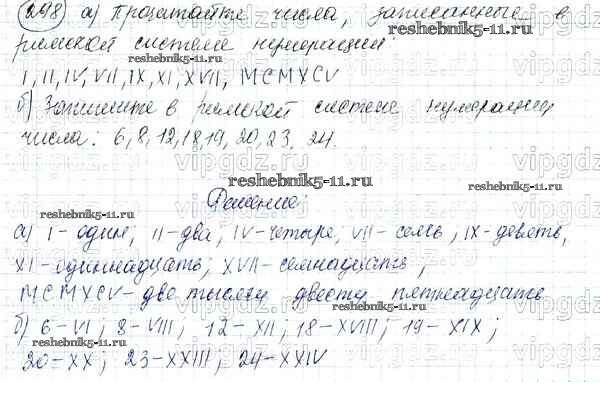 298 а) Прочитайте числа, записанные в
римской системе нумерации:
reshebnik5-11.ru
I, II, IV, VII, IX, XI, XVII, MCMXCV
reshebnik5-11.ru
б) Запишите в римской системе нумерации
числа: 6, 8, 12, 18, 19, 20, 23, 24.
vipgdz.ru
reshebnik5-11.ru
Решение:
reshebnik5-11.ru
а) I - один, II - два; IV - четыре; VII - семь, IX - девять,
XI - одиннадцать; XVII - семнадцать;
reshebnik5-11.ru
MCMXCV - две тысячи двести пятнадцать
б) 6 - VI; 8 - VIII; 12 - XII; 18 - XVIII; 19 - XIX;
20 - XX; 23 - XXIII; 24 - XXIV
reshebnik5-11.ru